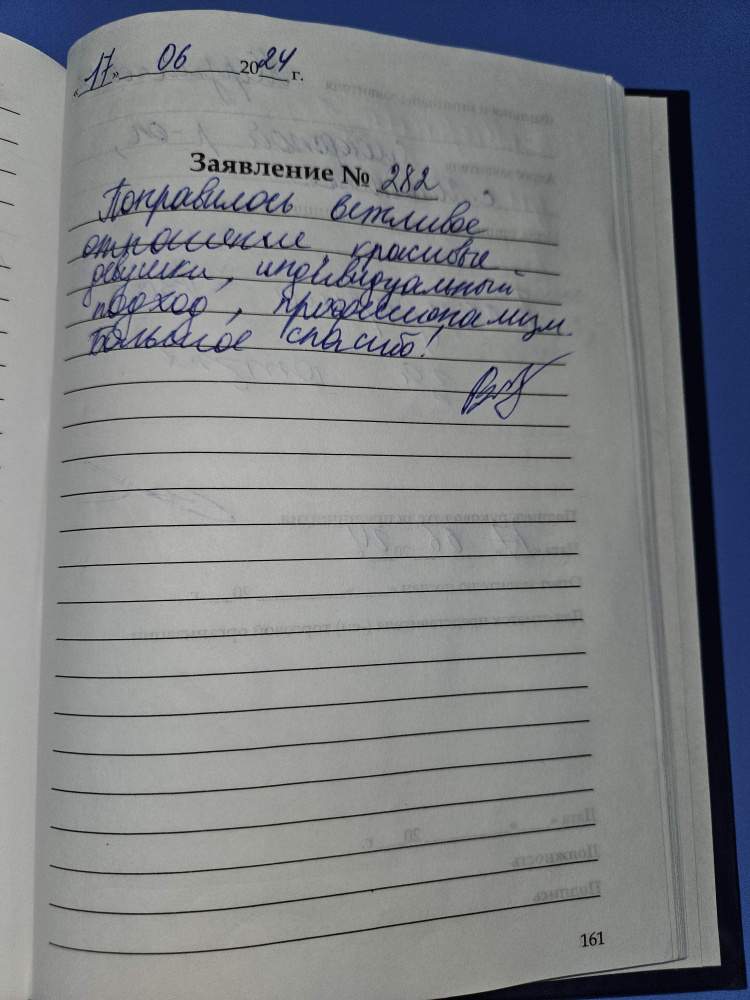 «17» 06 2024 г.
Заявление № 282
Понравилось вежливое
отношение, красивые
девушки, индивидуальный
подход, профессионализм.
Большое спасибо!
161